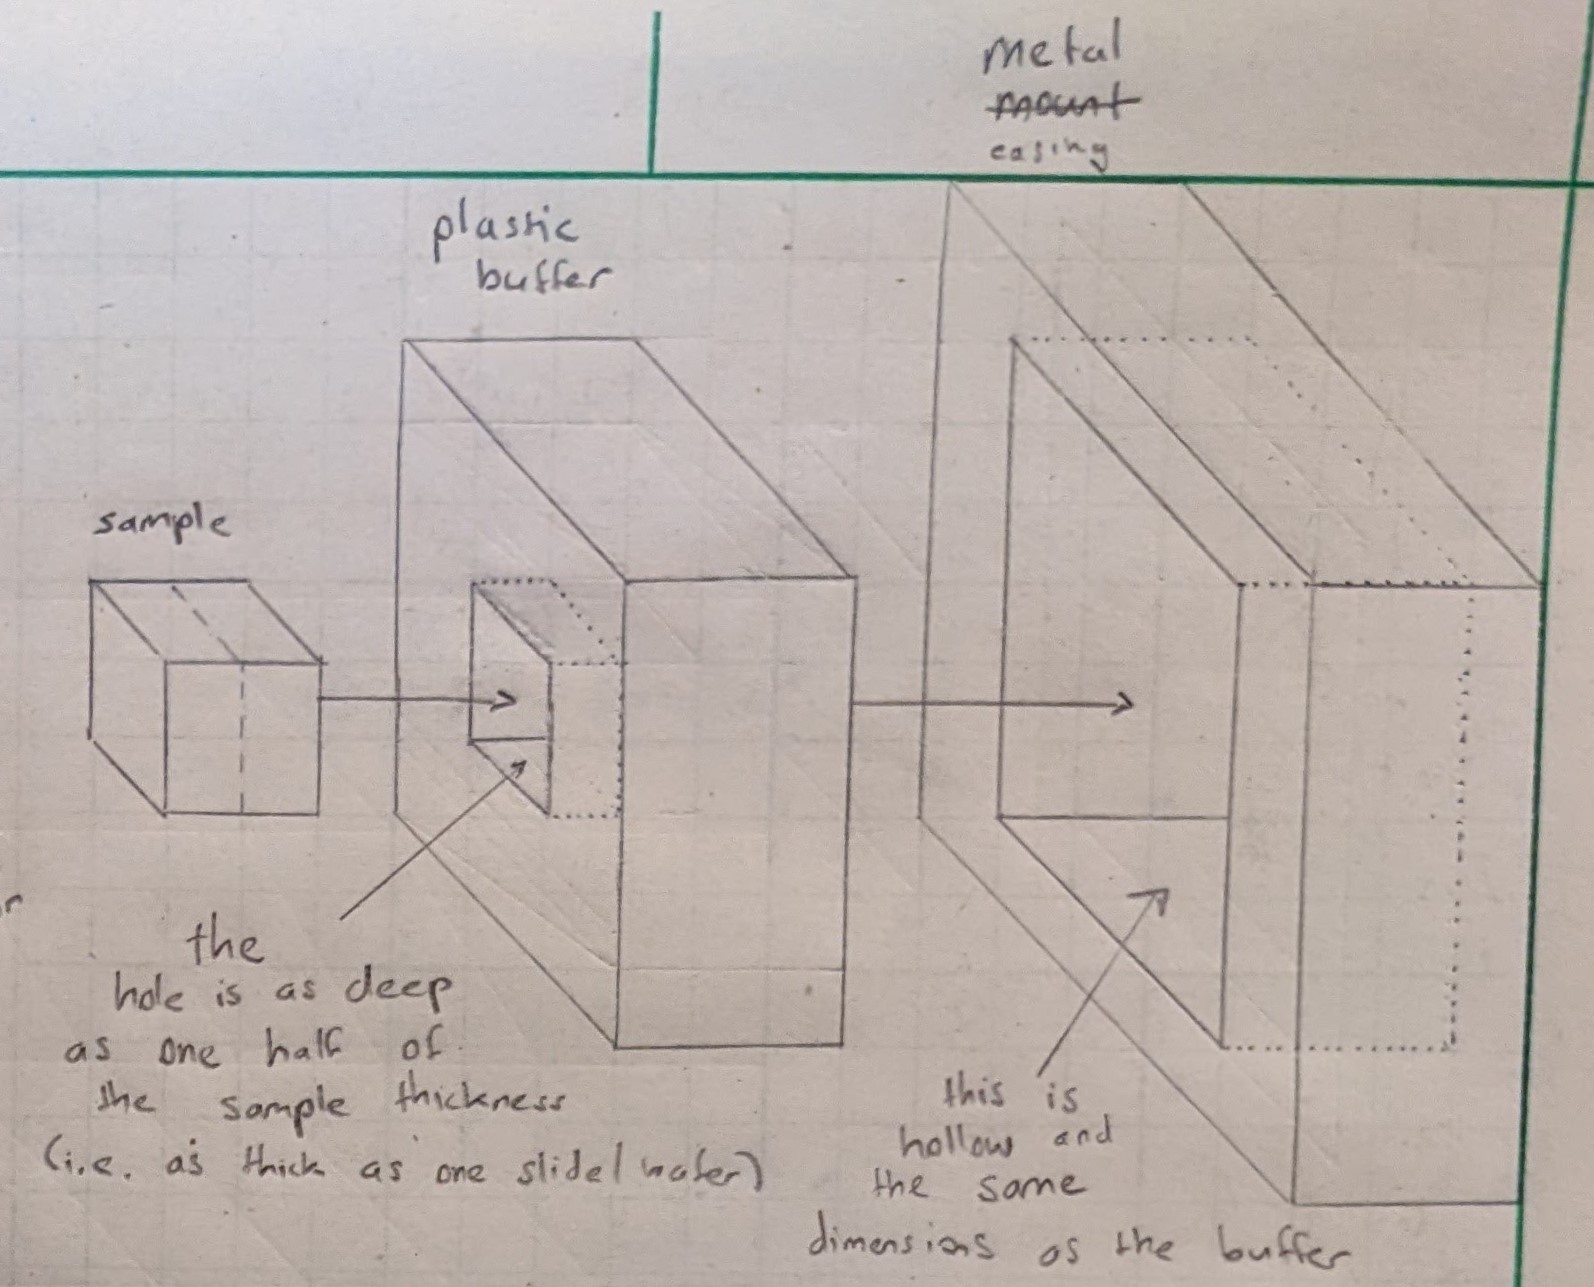 metal
mount
casing
plastic
buffer
sample
the
hole is as deep
as one half of
the sample thickness
(i.e. as thick as one slide/wafer)
this is
hollow and
the same
dimensions as the buffer